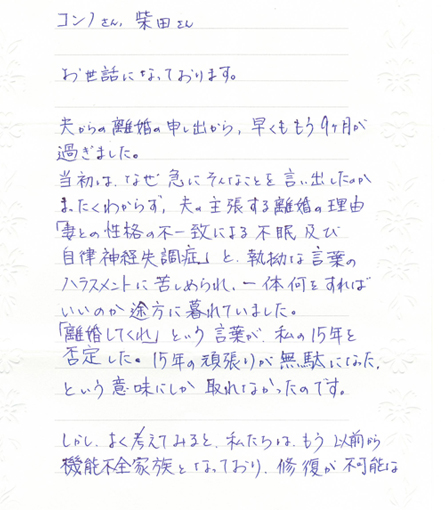 コンノさん、柴田さん
お世話になっております。
夫からの離婚の申し出から、早くももう9ヶ月が
過ぎました。
当初は、なぜ急にそんなことを言い出したのか
まったくわからず、夫の主張する離婚の理由
「妻との性格の不一致による不眠及び
自律神経失調症。」と、執拗な言葉の
ハラスメントに苦しめられ、一体何をすれば
いいのか途方に暮れていました。
「離婚してくれ」という言葉が、私の15年を
否定した。15年の頑張りが無駄になった、
という意味にしか取れなかったのです。
しかし、よく考えてみると、私たちは、もう以前から
機能不全家族となっており、修復が不可能な